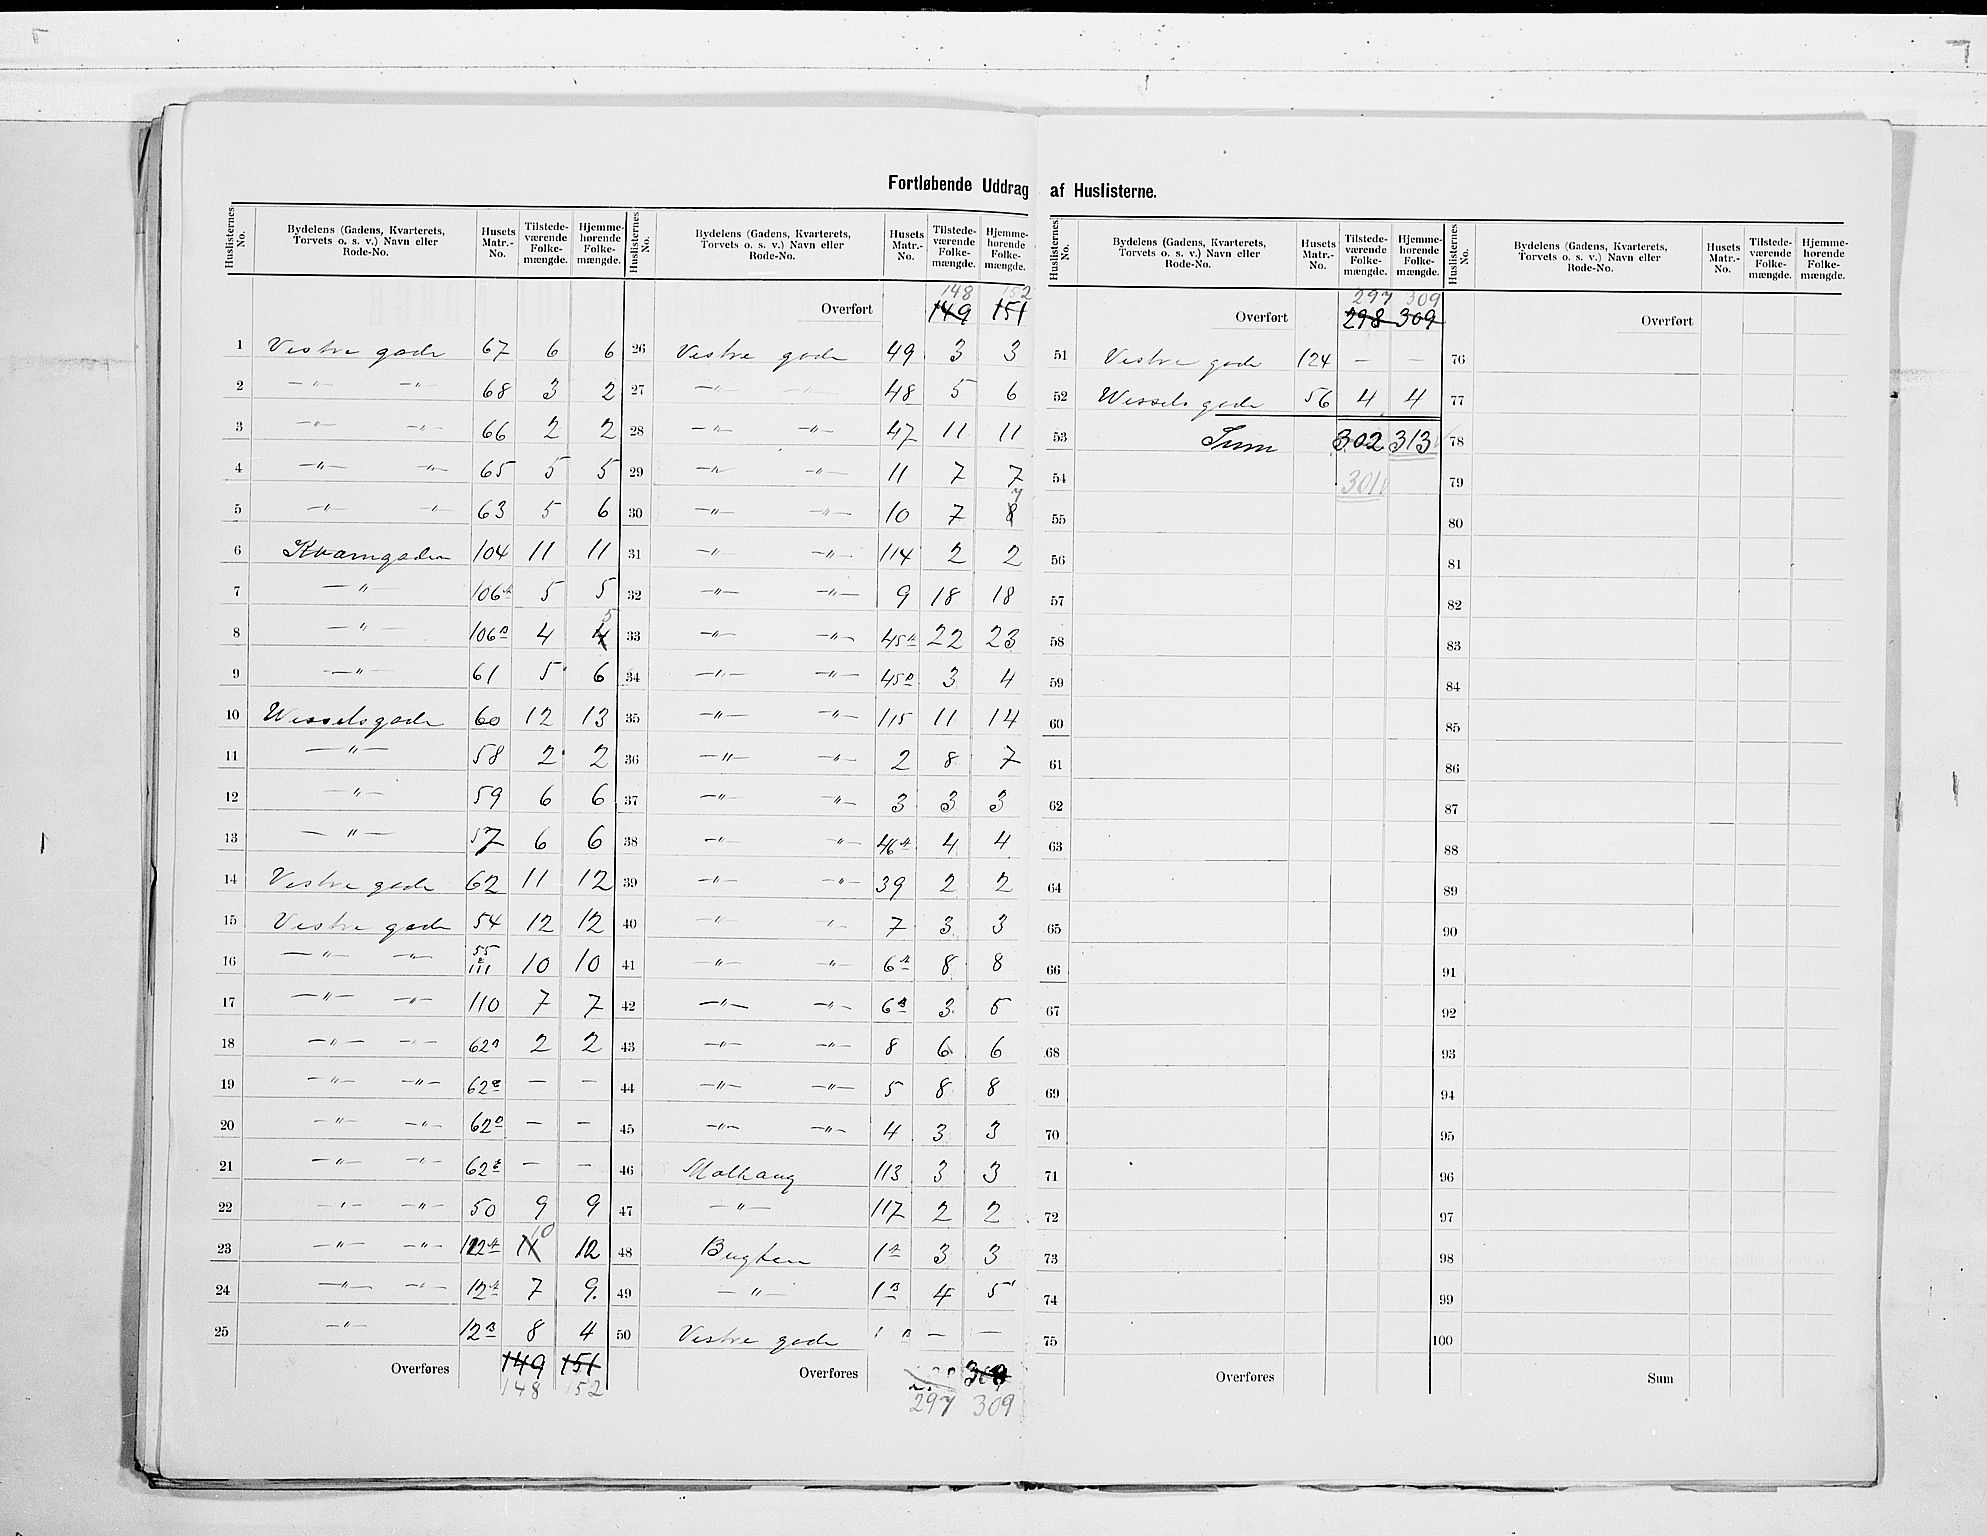 Fortløbende Uddrag af Huslisterne.
Huslisternes No. Bydelens (Gadens, Kvarterets, Torvets o. s. v.) Navn eller Rode-No. Husets Matr.-No. Tilstedeværende Folkemængde. Hjemmehørende Folkemængde.
1 Vestre gade 67 6 6
2 —"— —"— 68 3 2
3 —"— —"— 66 2 2
4 —"— —"— 65 5 5
5 —"— —"— 63 5 6
6 Kvarngaden 104 11 11
7 —"— 106A 5 5
8 —"— 106B 4 4 5
9 —"— 61 5 6
10 Wesselsgade 60 12 13
11 —"— 58 2 2
12 —"— 59 6 6
13 —"— 57 6 6
14 Vestre gade 62 11 12
15 Vestre gade 54 12 12
16 —"— —"— 55 & 111 10 10
17 —"— —"— 110 7 7
18 —"— —"— 62B 2 2
19 —"— —"— 62C — —
20 —"— —"— 62D — —
21 —"— —"— 62E — —
22 —"— —"— 50 9 9
23 —"— —"— 112A 11 10 12
24 —"— —"— 12A 7 9
25 —"— 12B 8 4
Overføres 149 151
148 152
Huslisternes No. Bydelens (Gadens, Kvarterets, Torvets o. s. v.) Navn eller Rode-No. Husets Matr.-No. Tilstedeværende Folkemængde. Hjemmehørende Folkemængde.
148 152
Overført 149 151
26 Vestre gade 49 3 3
27 —"— —"— 48 5 6
28 —"— —"— 47 11 11
29 —"— —"— 11 7 7
30 —"— —"— 10 7 8 7
31 —"— —"— 114 2 2
32 —"— —"— 9 18 18
33 —"— —"— 45A 22 23
34 —"— —"— 45B 3 4
35 —"— —"— 115 11 14
36 —"— —"— 2 8 7
37 —"— —"— 3 3 3
38 —"— —"— 46A 4 4
39 —"— —"— 39 2 2
40 —"— —"— 7 3 3
41 —"— —"— 6A 8 8
42 —"— —"— 6B 3 5
43 —"— —"— 8 6 6
44 —"— —"— 5 8 8
45 —"— —"— 4 3 3
46 Molhaug 113 3 3
47 —"— 117 2 2
48 Bugten 1A 3 3
49 —"— 1B 4 5
50 Vestre gade — —
Overføres
297 309
Huslisternes No. Bydelens (Gadens, Kvarterets, Torvets o. s. v.) Navn eller Rode-No. Husets Matr.-No. Tilstedeværende Folkemængde. Hjemmehørende Folkemængde.
297 309
Overført 298 309
51 Vestre gade 124 — —
52 Wessels gade 56 4 4
53 Sum 302 313
54 301
55
56
57
58
59
60
61
62
63
64
65
66
67
68
69
70
71
72
73
74
75
Overføres
Huslisternes No. Bydelens (Gadens, Kvarterets, Torvets o. s. v.) Navn eller Rode-No. Husets Matr.-No. Tilstedeværende Folkemængde. Hjemmehørende Folkemængde.
Overført
76
77
78
79
80
81
82
83
84
85
86
87
88
89
90
91
92
93
94
95
96
97
98
99
100
Sum